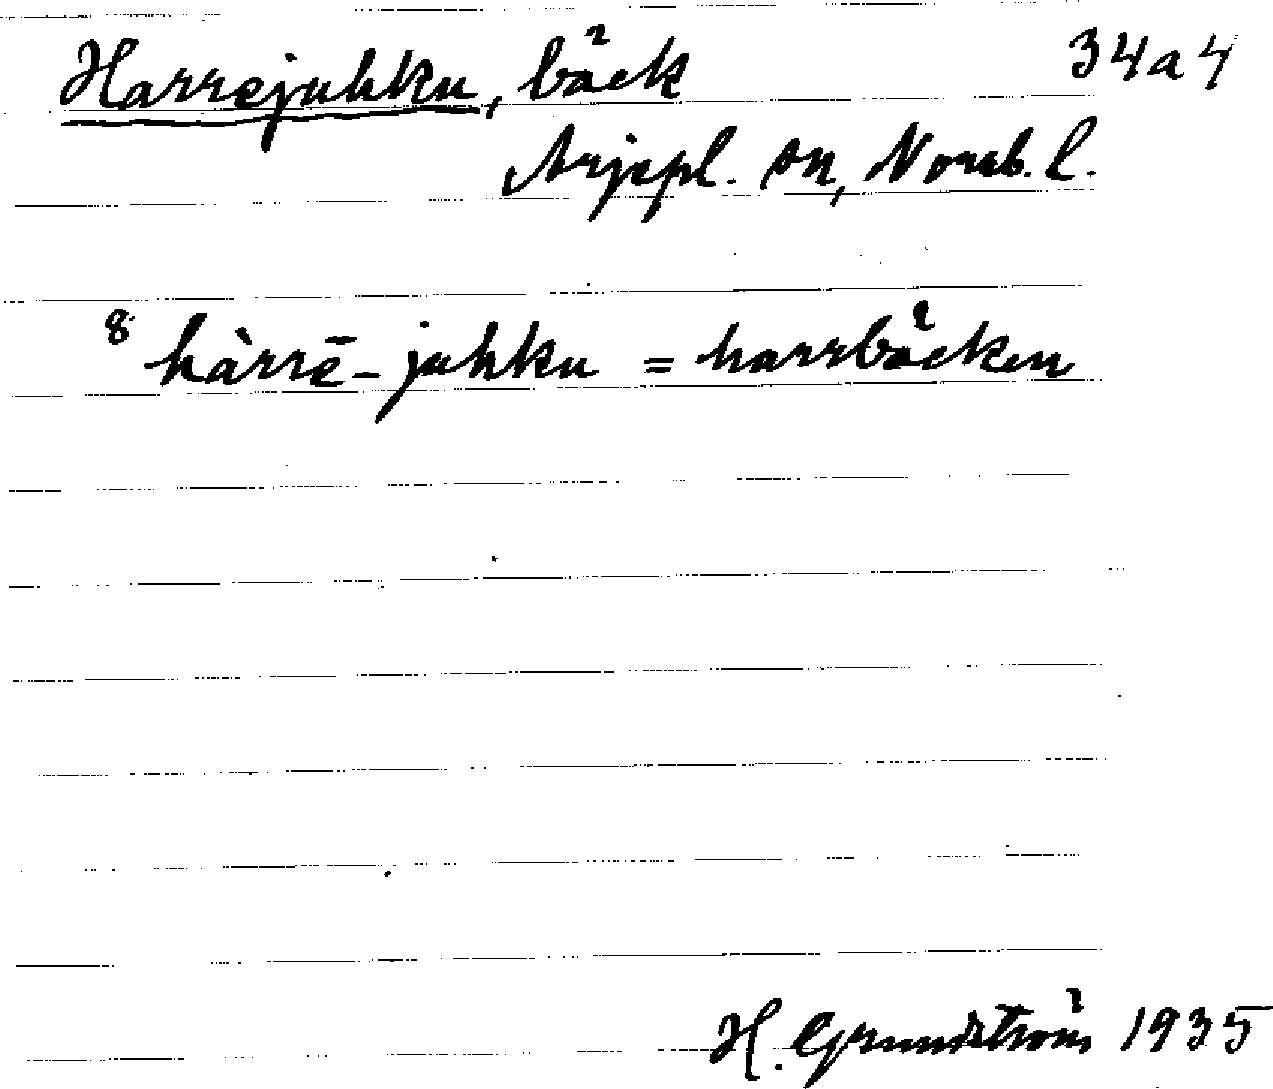 Harrejuhku, bäck 34a4
Arjepl. sn, Norrb. l.
8 hàrrē-juhku = harrbäcken
H. Grundström 1935